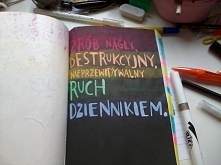 ZRÓB NAGŁY,
DESTRUKCYJNY,
NIEPRZEWIDYWALNY
RUCH
DZIENNIKIEM.